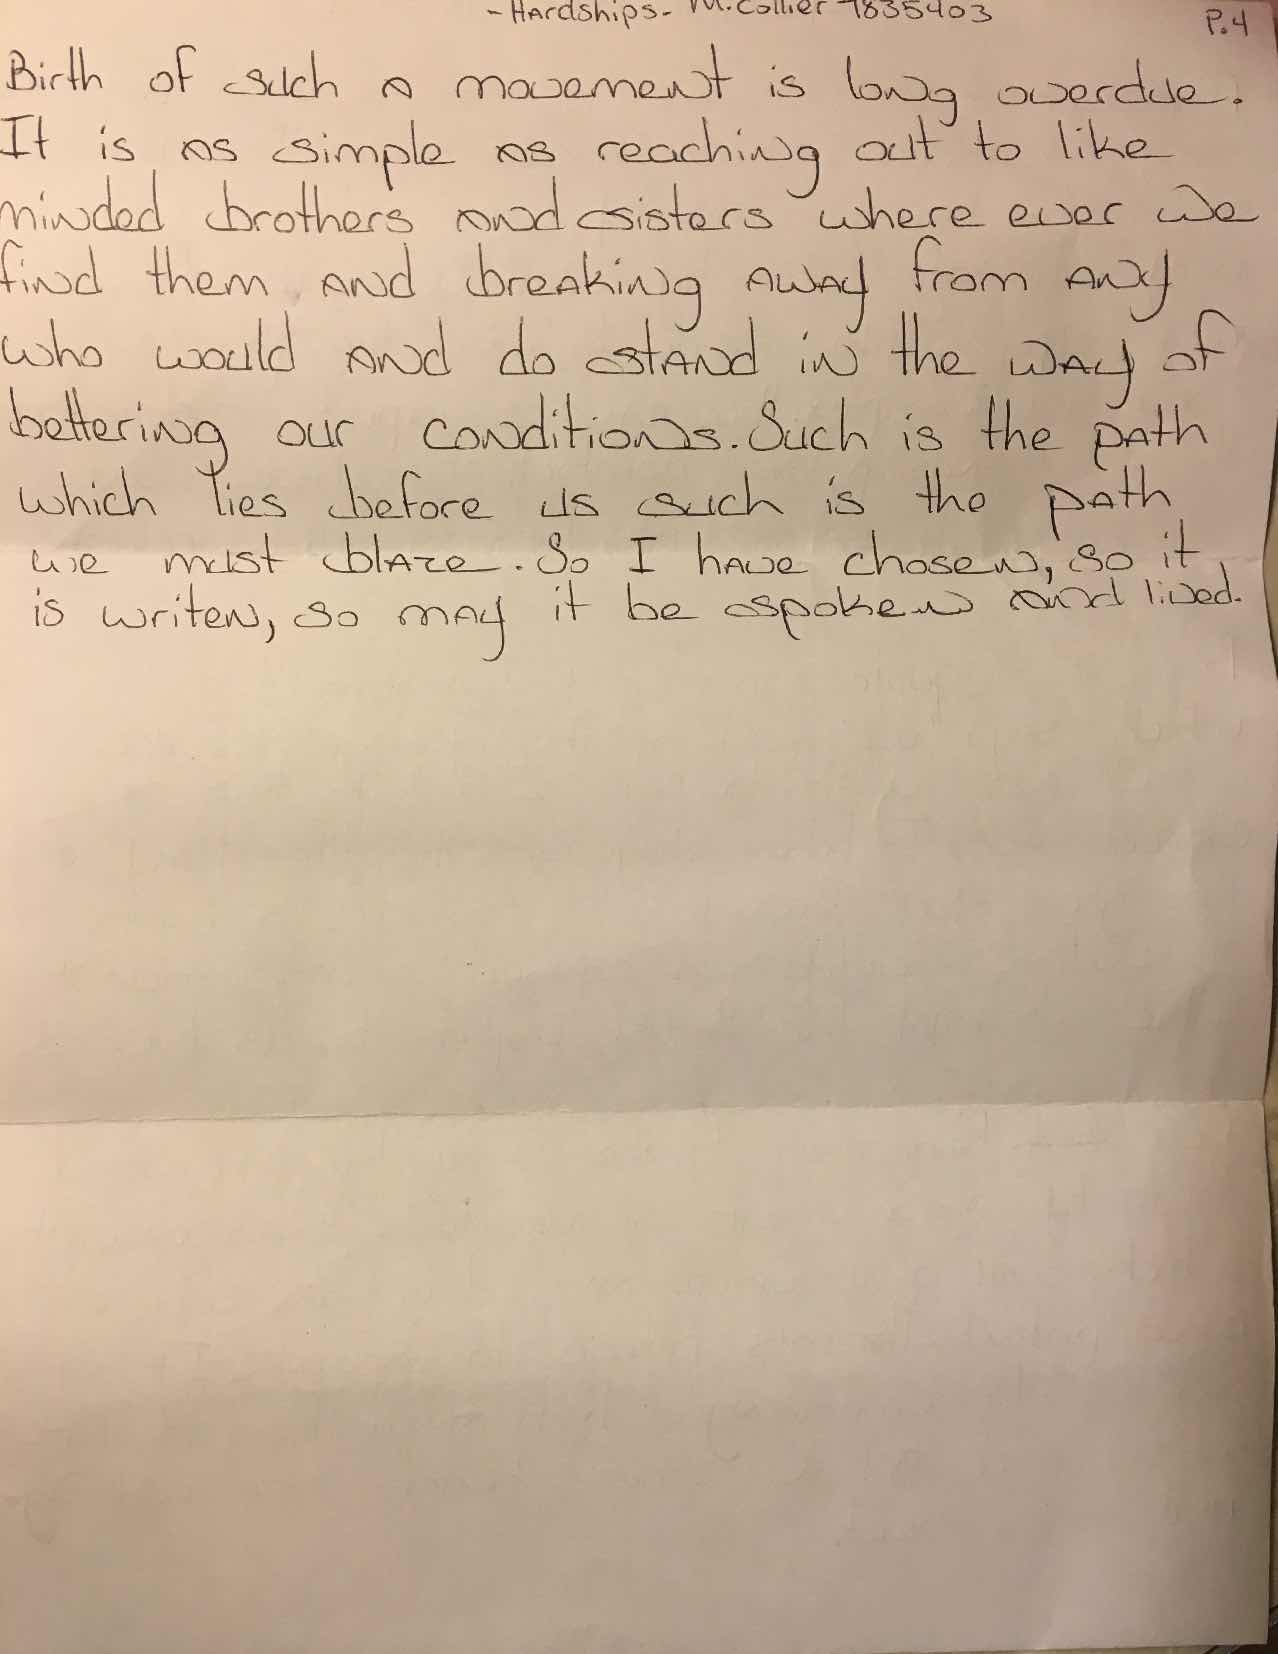 -Hardships- M. Collier 7835403
P.4
Birth of such a movement is long overdue.
It is as simple as reaching out to like
minded brothers and sisters where ever we
find them and breaking away from any
who would and do stand in the way of
bettering our conditions. Such is the path
which lies before us such is the path
we must blaze. So I have chosen, so it
is writen, so may it be spoken and lived.